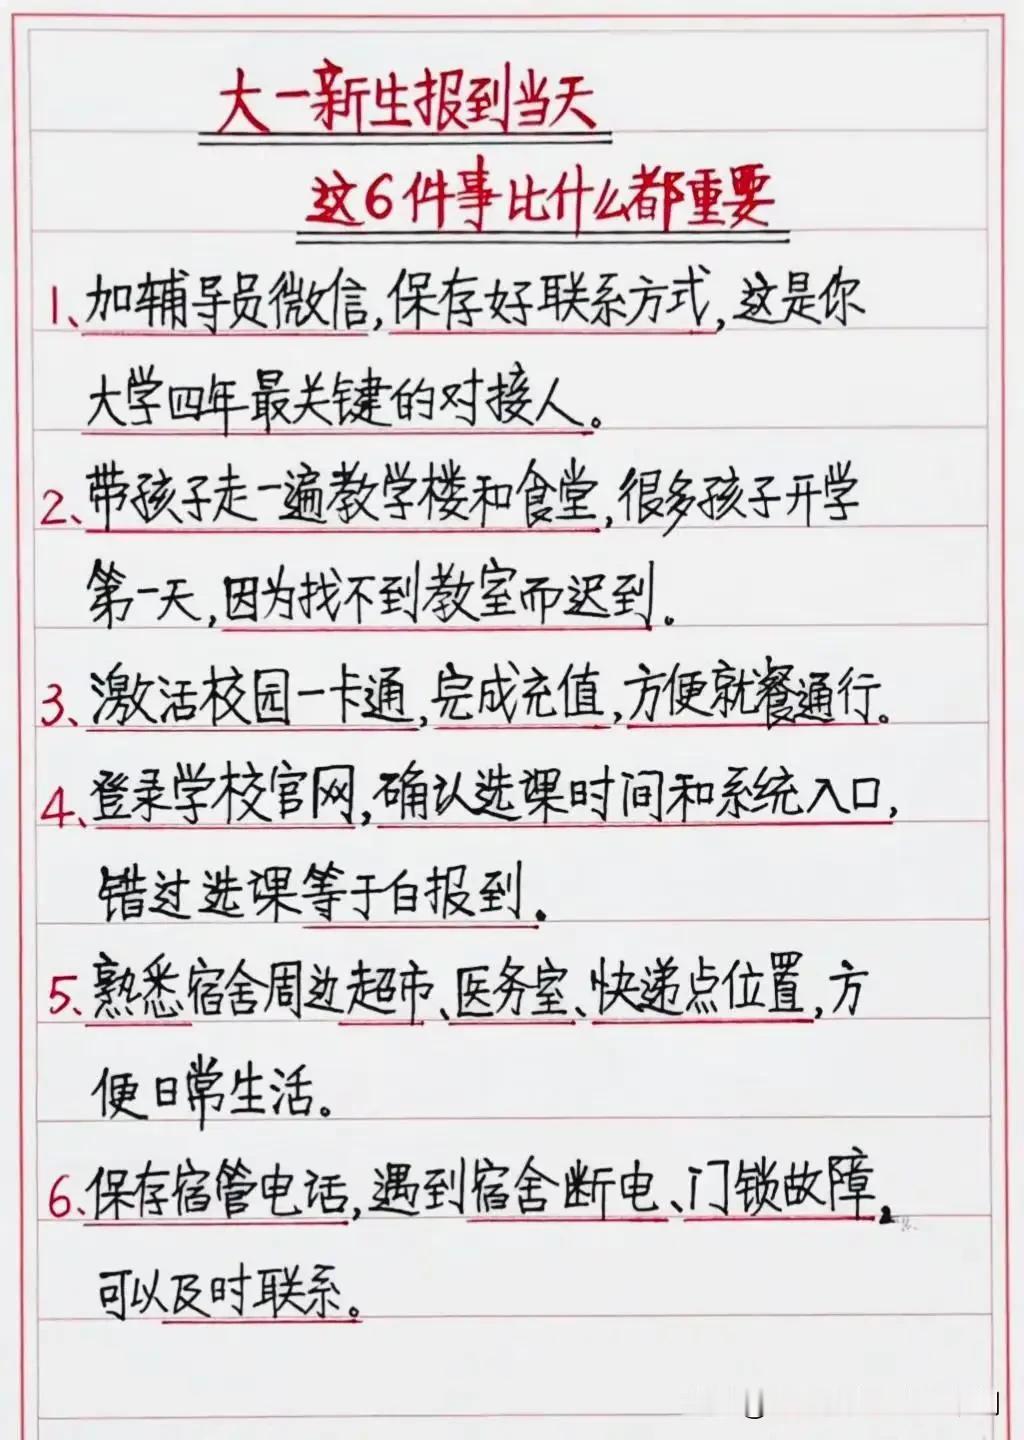 大一新生报到当天
这6件事比什么都重要
1、加辅导员微信,保存好联系方式,这是你
大学四年最关键的对接人。
2、带孩子走一遍教学楼和食堂,很多孩子开学
第一天,因为找不到教室而迟到。
3、激活校园一卡通,完成充值,方便就餐通行。
4、登录学校官网,确认选课时间和系统入口,
错过选课等于白报到.
5、熟悉宿舍周边超市、医务室、快递点位置,方
便日常生活。
6、保存宿管电话,遇到宿舍断电、门锁故障,
可以及时联系。